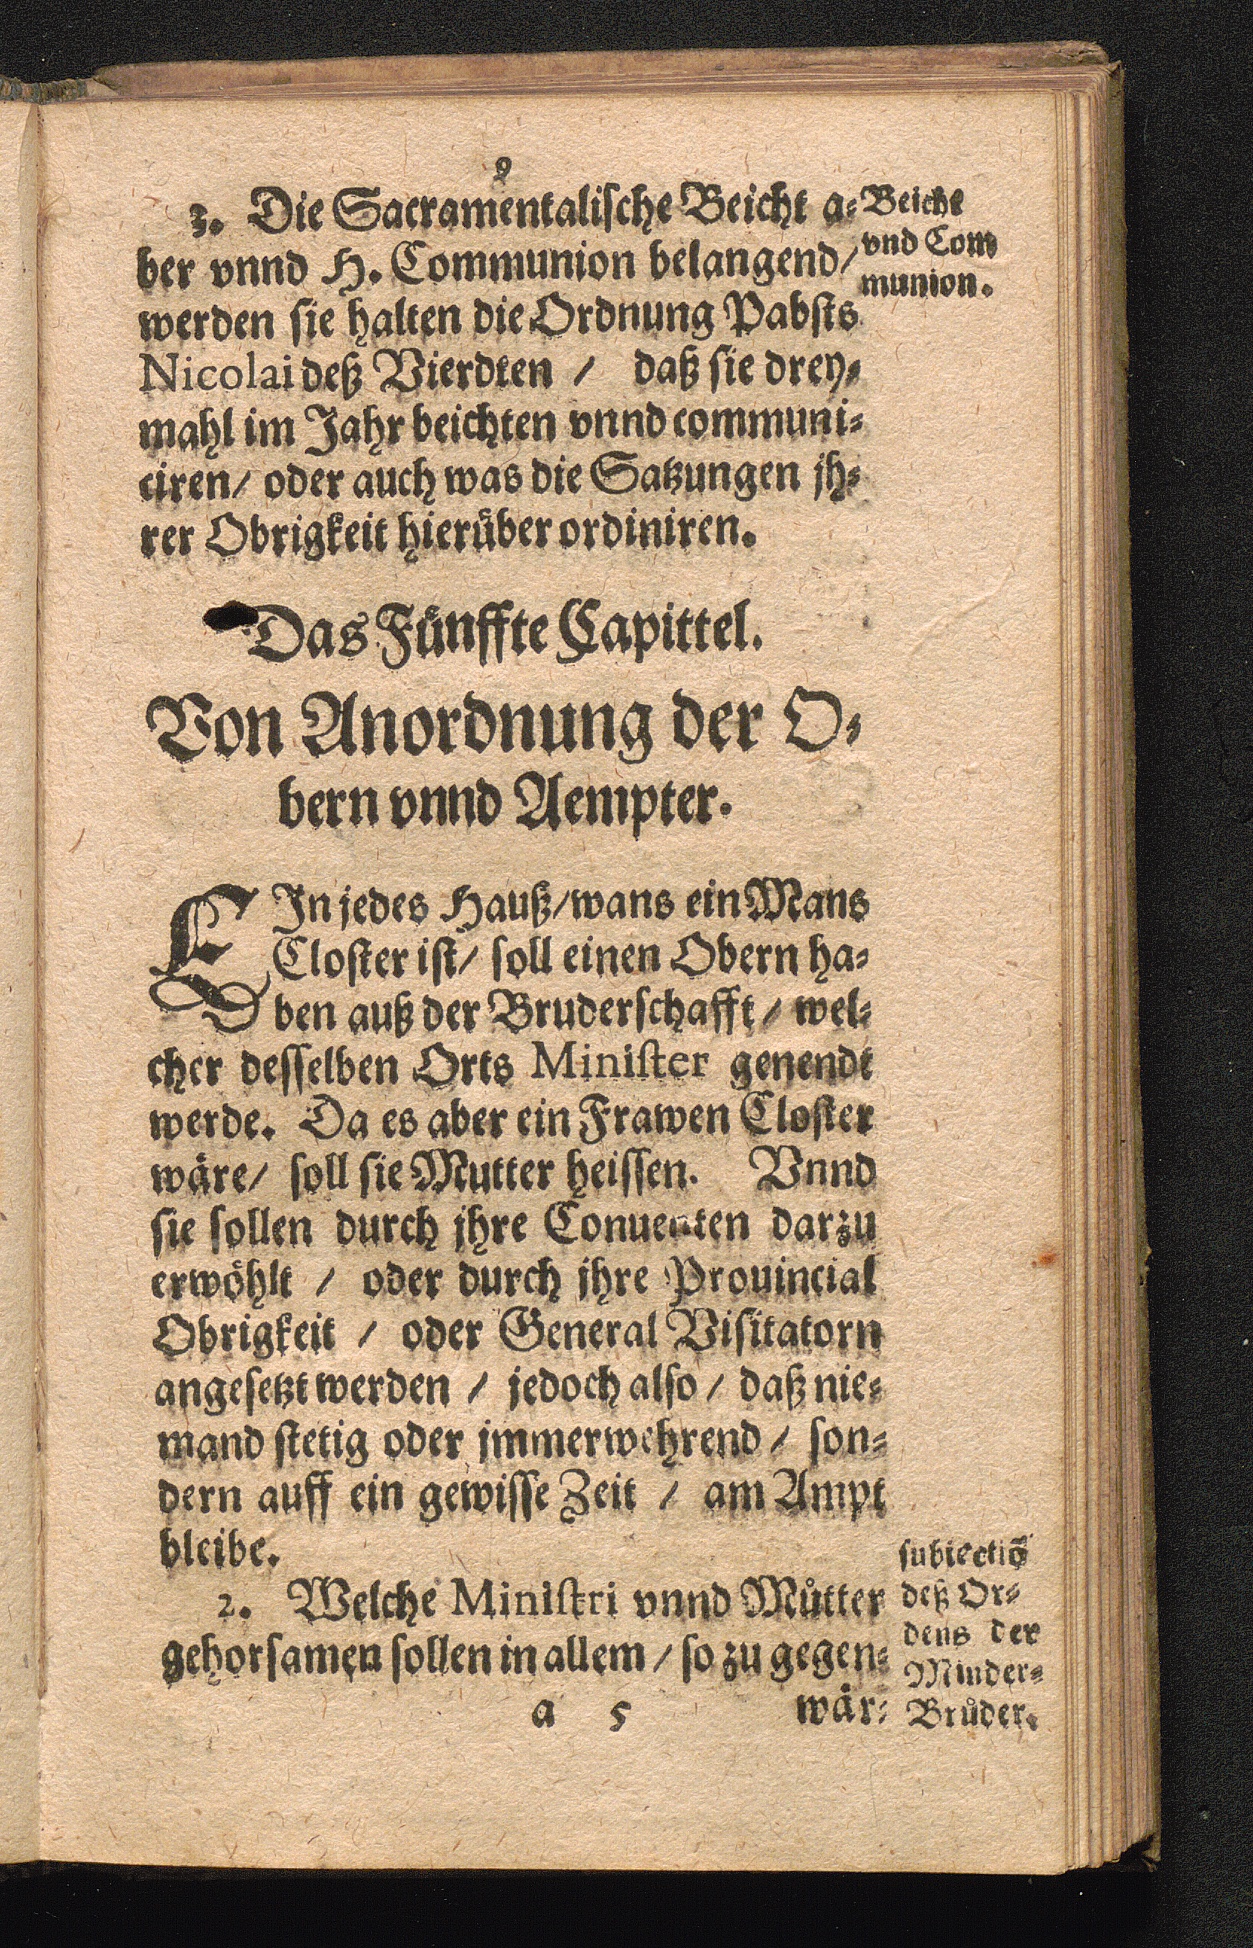 9
3. Die Sacramentalische Beicht a-
ber vnnd H. Communion belangend/
werden sie halten die Ordnung Pabsts
Nicolai deß Vierdten / daß sie drey-
mahl im Jahr beichten vnnd communi-
ciren/ oder auch was die Satzungen jh-
rer Obrigkeit hierüber ordiniren.
Beicht
vnd Com
munion.
Das Fünffte Capittel.
Von Anordnung der O-
bern vnnd Aempter.
EIn jedes Hauß/wans ein Mans
Closter ist/ soll einen Obern ha-
ben auß der Bruderschafft / wel-
cher desselben Orts Minister genendt
werde. Da es aber ein Frawen Closter
wäre/ soll sie Mutter heissen. Vnnd
sie sollen durch jhre Conuenten darzu
erwöhlt / oder durch jhre Prouincial
Obrigkeit / oder General Visitatorn
angesetzt werden / jedoch also / daß nie-
mand stetig oder jmmerwehrend / son-
dern auff ein gewisse Zeit / am Ampt
bleibe.
2. Welche Ministri vnnd Můtter
gehorsamen sollen in allem / so zu gegen-
subiectiõ
deß Or-
dens der
Minder-
Brůder.
a 5 wär-